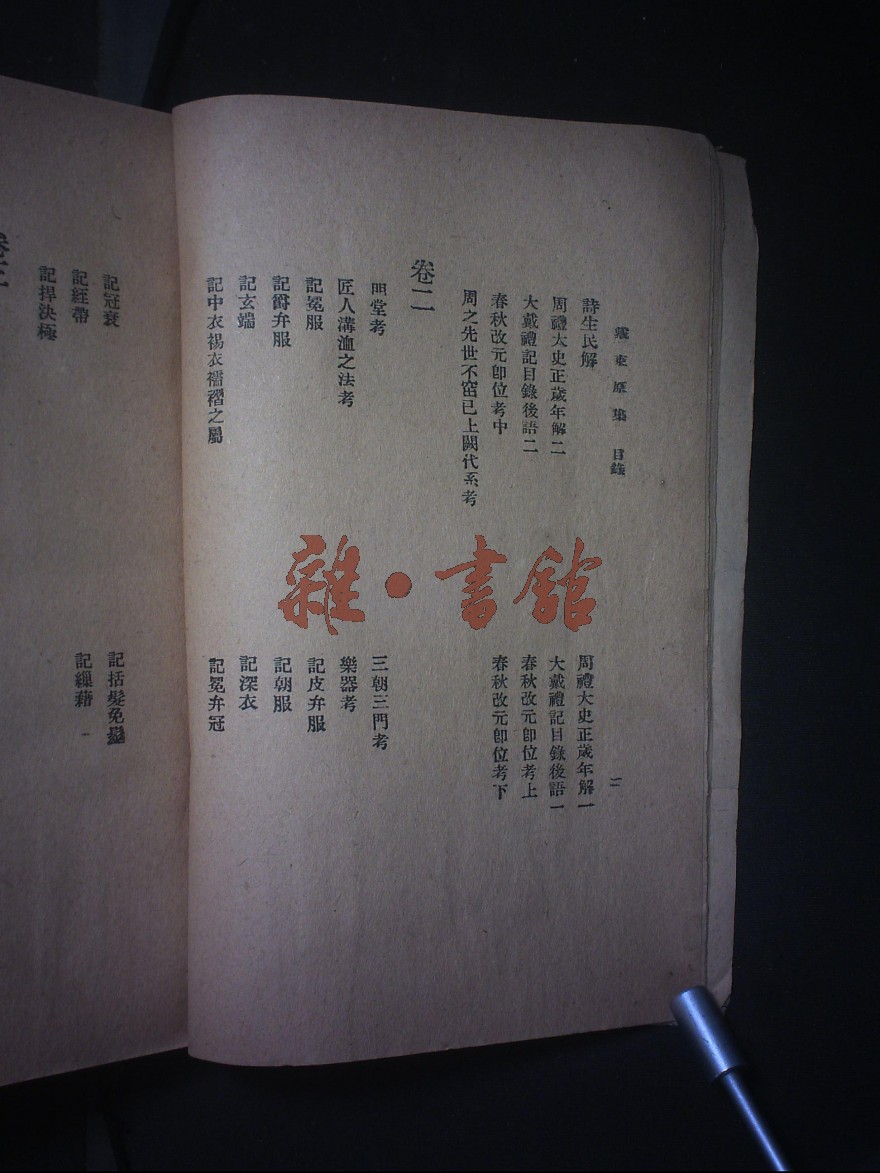 戴東原集 目錄 二
詩生民解 周禮大史正歲年解一
周禮大史正歲年解二 大戴禮記目錄後語一
大戴禮記目錄後語二 春秋改元卽位考上
春秋改元卽位考中 春秋改元卽位考下
周之先世不窋已上闕代系考
卷二
明堂考 三朝三門考
匠人溝洫之法考 樂器考
記冕服 記皮弁服
記爵弁服 記朝服
記玄端 記深衣
記中衣裼衣襦褶之屬 記冕弁冠
記冠衰 記括髮免髽
記絰帶 記繅藉
記捍決極
卷三
雜·書館